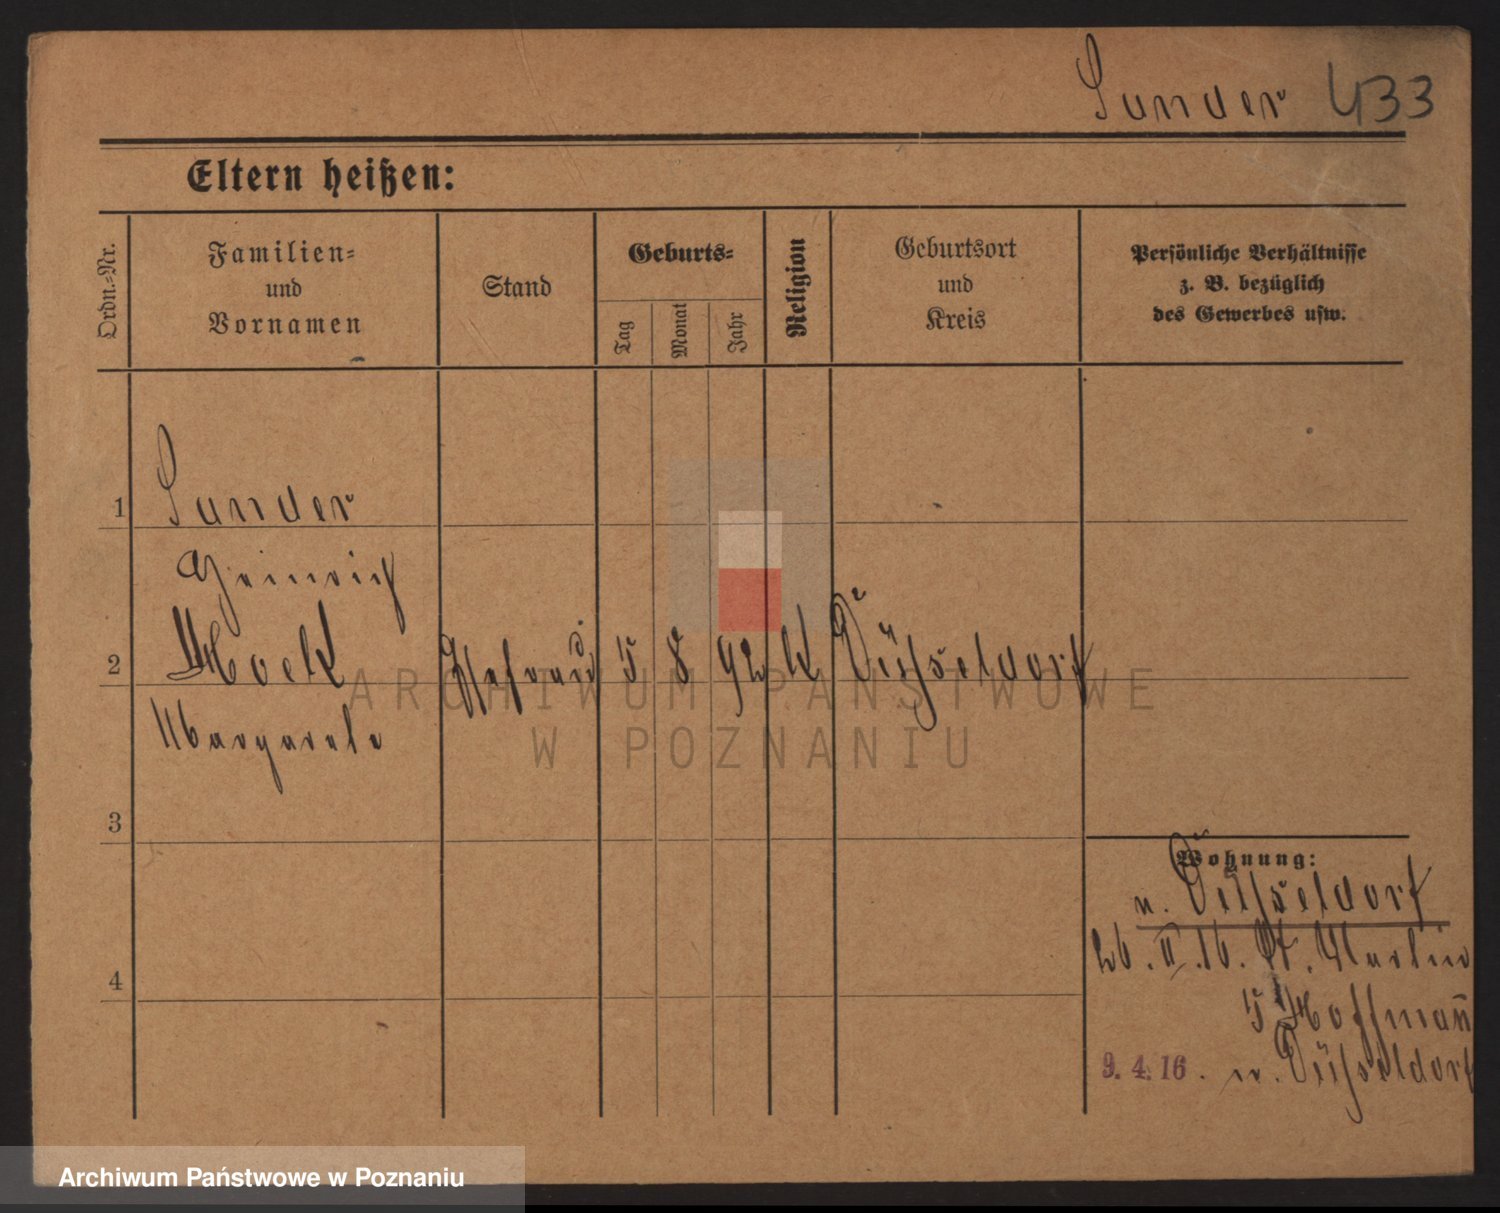 Sander 433
Eltern heißen:
Ordn.-Nr.
Familien-
und
Vornamen
Stand
Geburts-
Tag
Monat
Jahr
Religion
Geburtsort
und
Kreis
Persönliche Verhältnisse
z. B. bezüglich
des Gewerbes usw.
1 Sander
Heinrich
2 Ehefrau 5 8 92 K Düsseldorf
Margarete
3
4
Wohnung:
n. Düsseldorf
26. II. 16. St. Martin
5 Hoffmann
9. 4. 16. n. Düsseldorf
ARCHIWUM PAŃSTWOWE
W POZNANIU
Archiwum Państwowe w Poznaniu